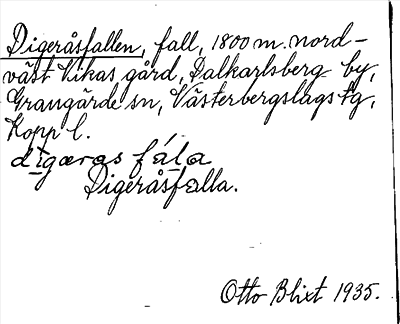 Digeråsfallen, fall, 1800 m. nord-
väst Vikas gård, Dalkarlsberg by,
Grangärde sn, Västerbergslags tg,
Kopp l.
digæras fála
Digeråsfalla.
Otto Blixt 1935.